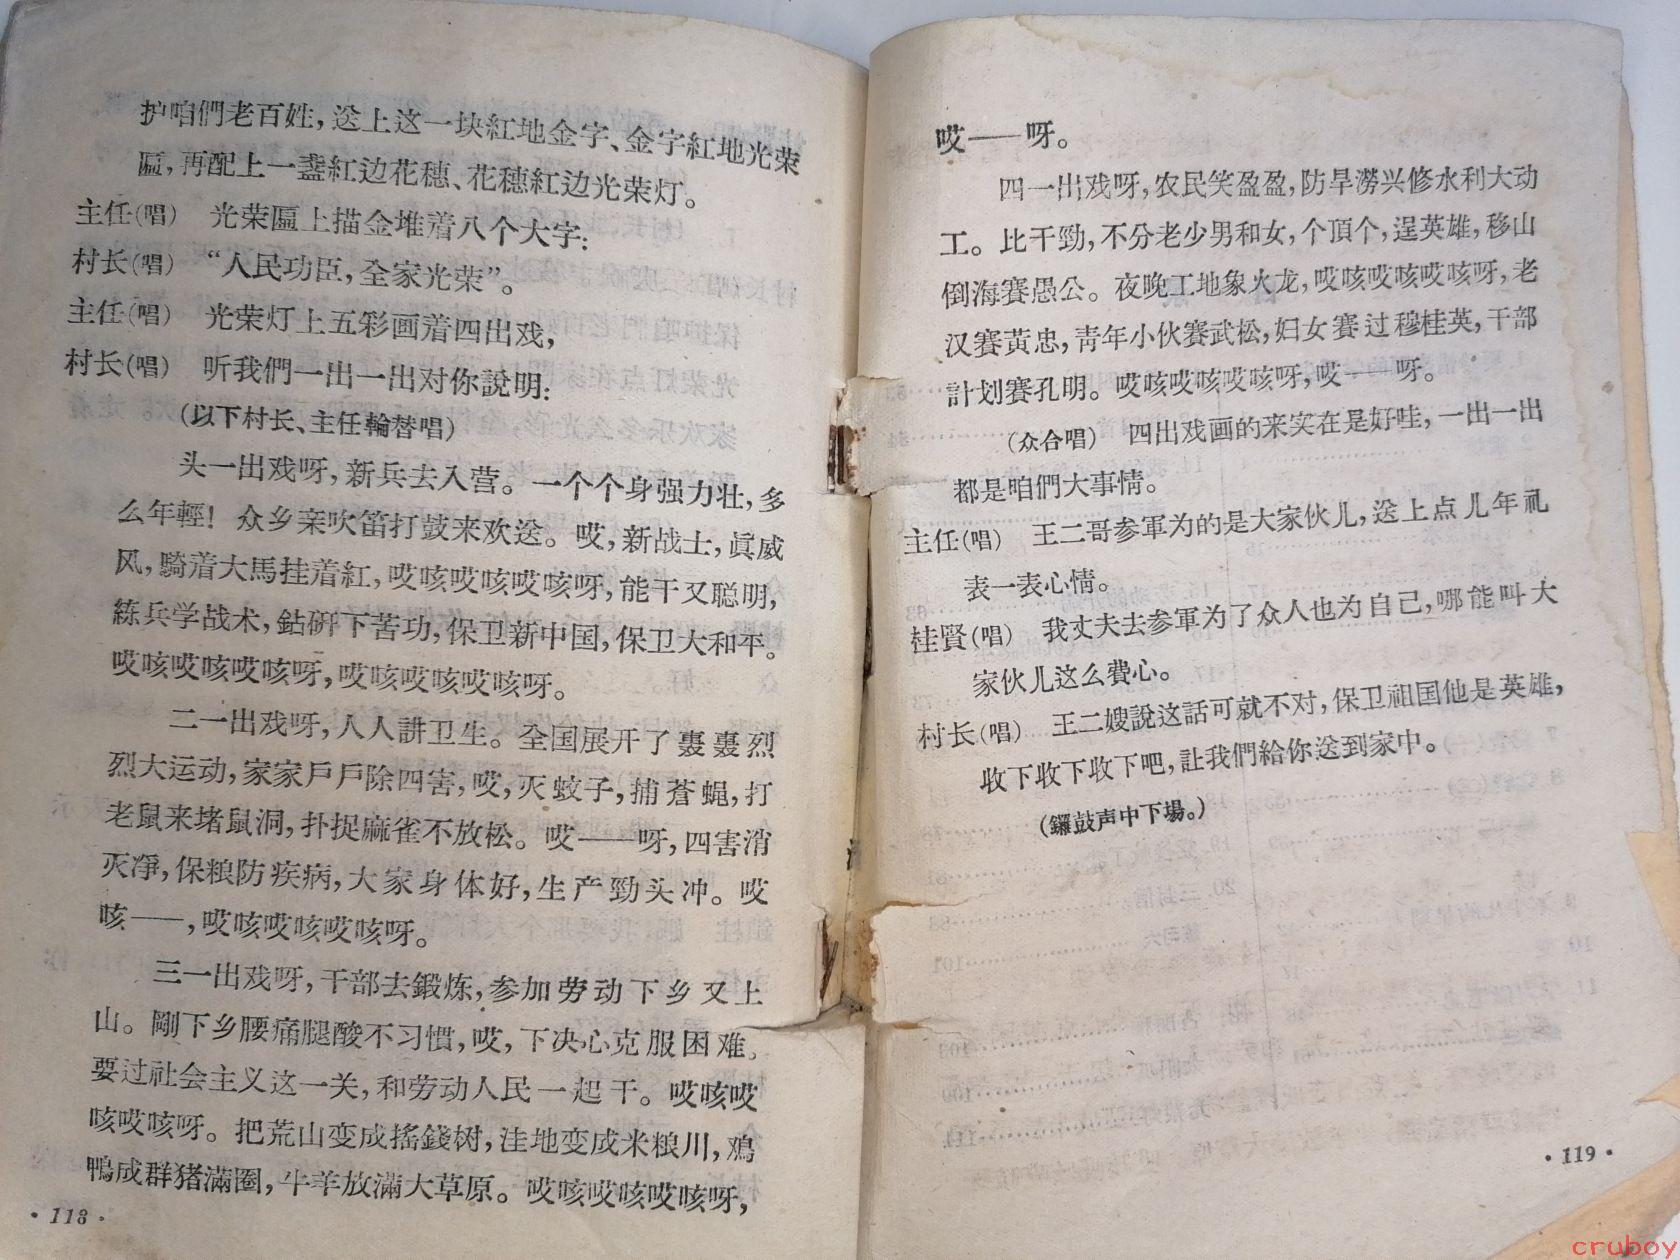 护咱們老百姓，送上这一块紅地金字、金字紅地光荣
匾，再配上一盞紅边花穗、花穗紅边光荣灯。
主任(唱) 光荣匾上描金堆着八个大字：
村长(唱) “人民功臣，全家光荣”。
主任(唱) 光荣灯上五彩画着四出戏，
村长(唱) 听我們一出一出对你說明：
(以下村长、主任輪替唱)
头一出戏呀，新兵去入营。一个个身强力壮，多
么年輕！众乡亲吹笛打鼓来欢送。哎，新战士，眞威
风，騎着大馬挂着紅，哎咳哎咳哎咳呀，能干又聪明，
練兵学战术，鉆研下苦功，保卫新中国，保卫大和平。
哎咳哎咳哎咳呀，哎咳哎咳哎咳呀。
二一出戏呀，人人講卫生。全国展开了轟轟烈
烈大运动，家家戶戶除四害，哎，灭蚊子，捕蒼蝇，打
老鼠来堵鼠洞，扑捉麻雀不放松。哎——呀，四害消
灭淨，保粮防疾病，大家身体好，生产勁头冲。哎
咳——，哎咳哎咳哎咳呀。
三一出戏呀，干部去鍛炼，参加劳动下乡又上
山。剛下乡腰痛腿酸不习慣，哎，下决心克服困难。
要过社会主义这一关，和劳动人民一起干。哎咳哎
咳哎咳呀。把荒山变成搖錢树，洼地变成米粮川，鳮
鴨成群猪滿圈，牛羊放滿大草原。哎咳哎咳哎咳呀，
·118·
哎——呀。
四一出戏呀，农民笑盈盈，防旱澇兴修水利大动
工。比干勁，不分老少男和女，个頂个，逞英雄，移山
倒海賽愚公。夜晚工地象火龙，哎咳哎咳哎咳呀，老
汉賽黃忠，靑年小伙賽武松，妇女賽过穆桂英，干部
計划賽孔明。哎咳哎咳哎咳呀，哎——呀。
(众合唱) 四出戏画的来实在是好哇，一出一出
都是咱們大事情。
主任(唱) 王二哥参軍为的是大家伙儿，送上点儿年礼
表一表心情。
桂賢(唱) 我丈夫去参軍为了众人也为自己，哪能叫大
家伙儿这么費心。
村长(唱) 王二嫂說这話可就不对，保卫祖国他是英雄，
收下收下收下吧，讓我們給你送到家中。
(鑼鼓声中下場。)
·119·
cruboy